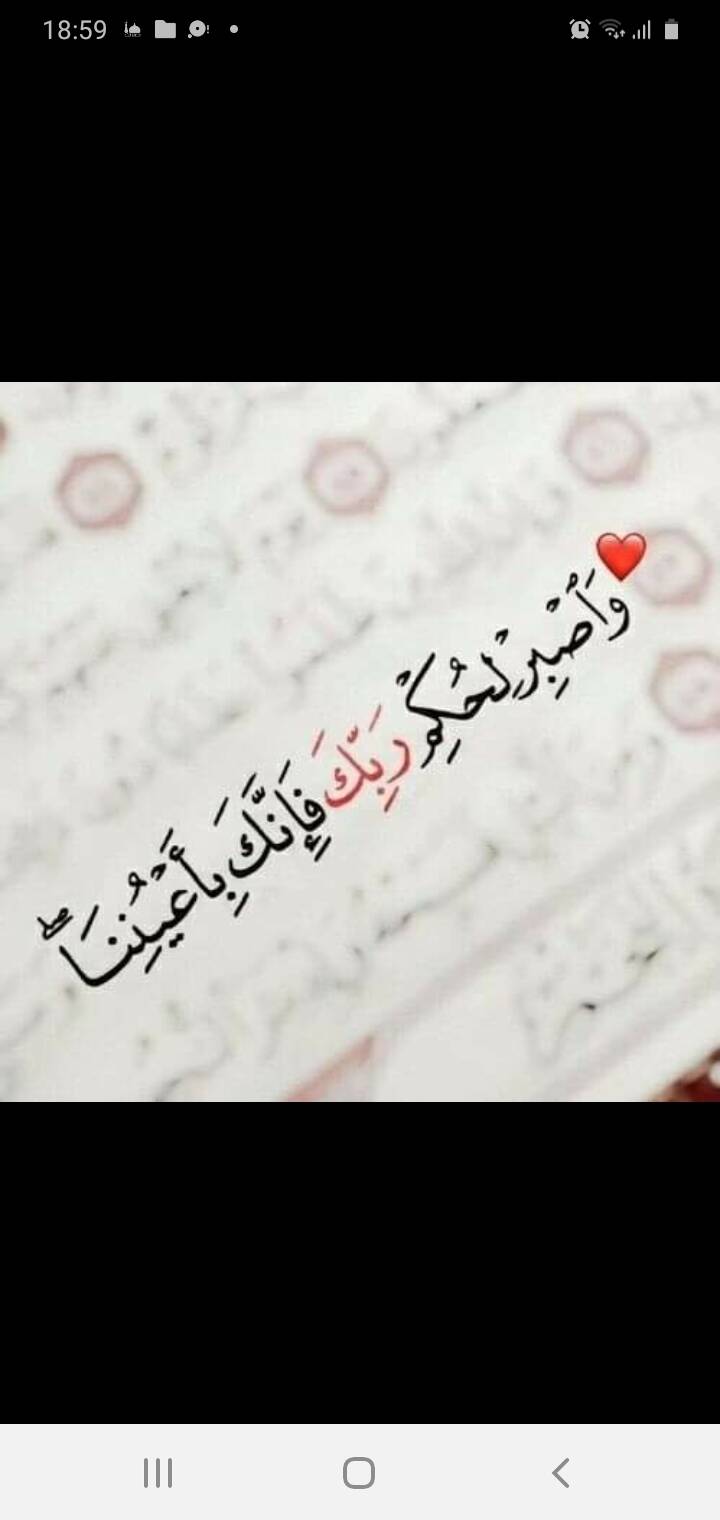 18:59
وَٱصْبِرْ لِحُكْمِ رَبِّكَ فَإِنَّكَ بِأَعْيُنِنَا ۖ